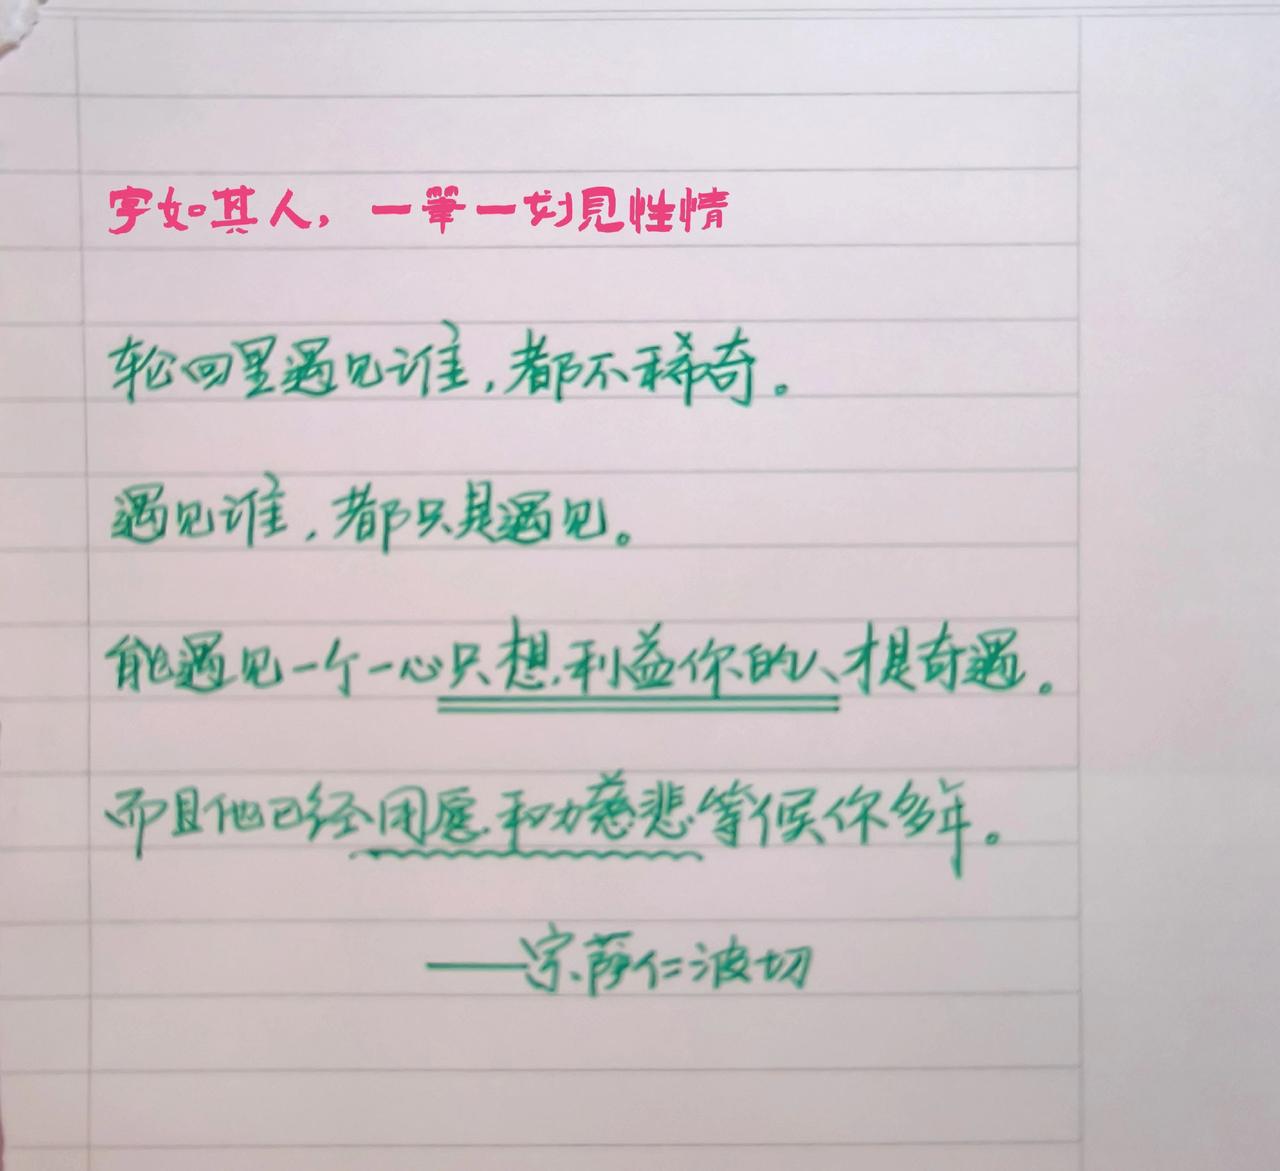 字如其人，一筆一划見性情
轮回里遇见谁，都不稀奇。
遇见谁，都只是遇见。
能遇见一个一心只想利益你的人、才是奇遇。
而且他已经用愿和力慈悲等候你多年。
——宗萨仁波切